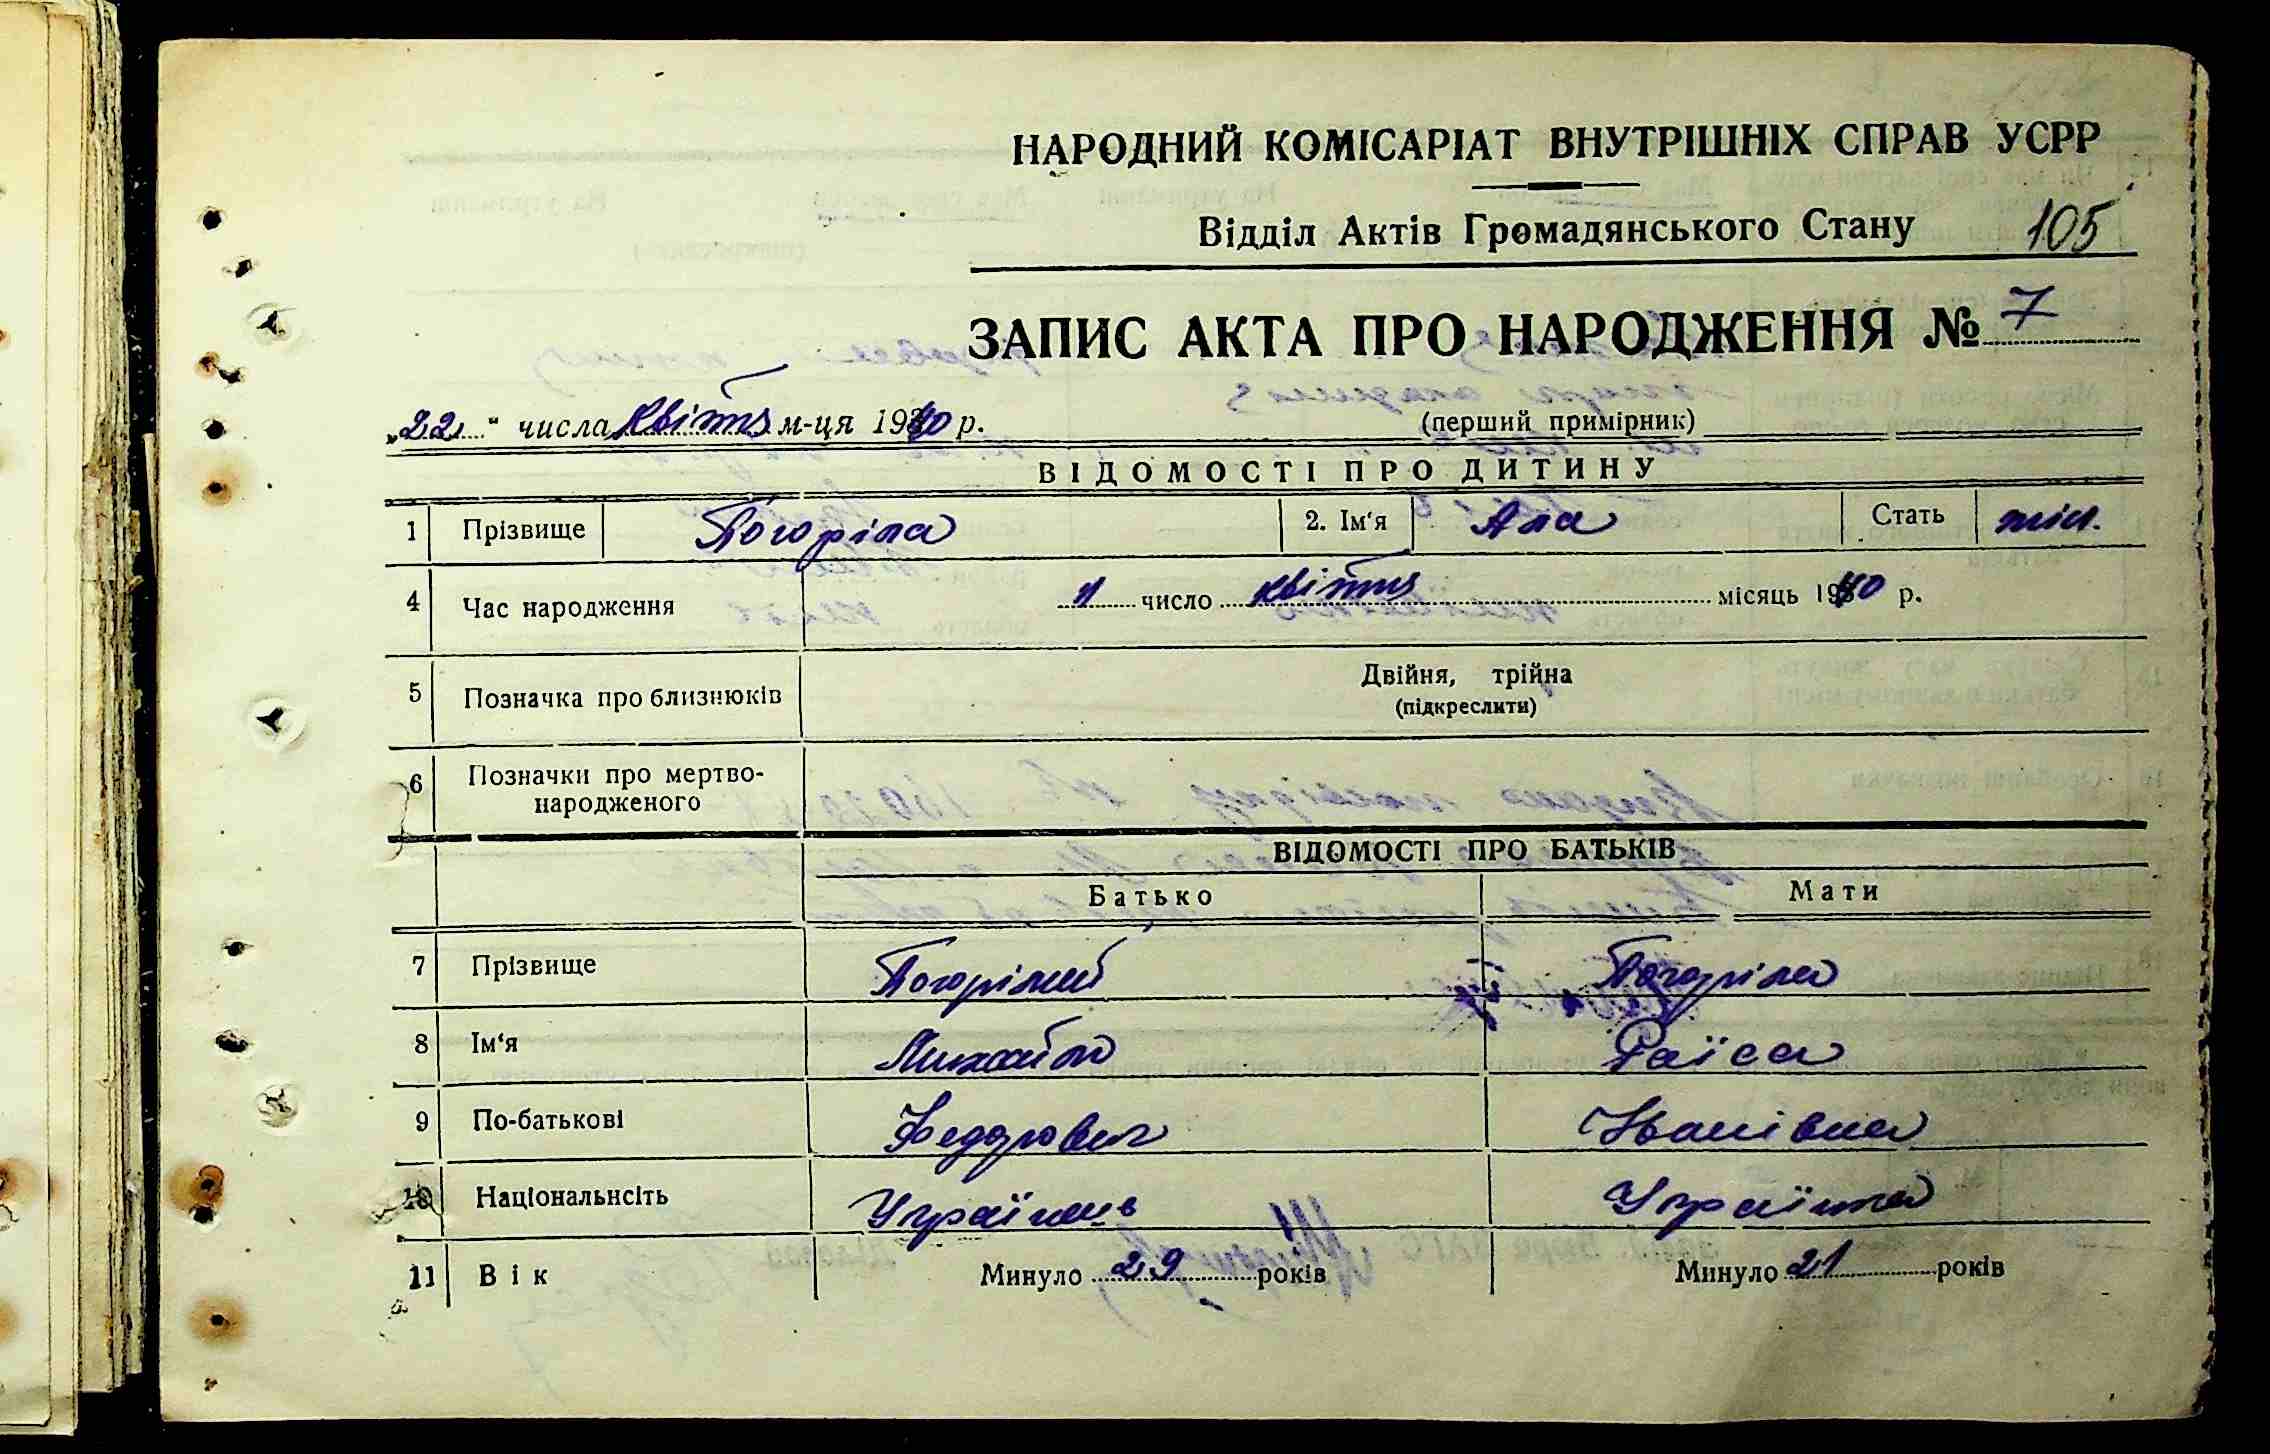 НАРОДНИЙ КОМІСАРІАТ ВНУТРІШНІХ СПРАВ УСРР
Відділ Актів Громадянського Стану 105
ЗАПИС АКТА ПРО НАРОДЖЕННЯ № 7
„22" числа квітня м-ця 1940 р. (перший примірник)
ВІДОМОСТІ ПРО ДИТИНУ
1 Прізвище Погоріла 2. Ім'я Ала Стать жін.
4 Час народження 1 число квітня місяць 1940 р.
5 Позначка про близнюків Двійня, трійна
(підкреслити)
6 Позначки про мертво-
народженого
ВІДОМОСТІ ПРО БАТЬКІВ
Батько Мати
7 Прізвище Погорілий Погоріла
8 Ім'я Михайло Раїса
9 По-батькові Федорович Іванівна
10 Національнсіть Українець Українка
11 Вік Минуло 29 років Минуло 21 років